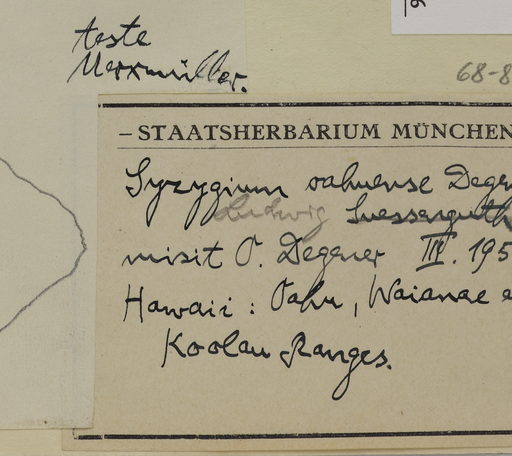 teste
Merxmüller.
68-8
– STAATSHERBARIUM MÜNCHEN
Syzygium oahuense Degen
Ludwig Suessenguth
misit O. Degener III. 195
Hawaii: Oahu, Waianae e
Koolau Ranges.